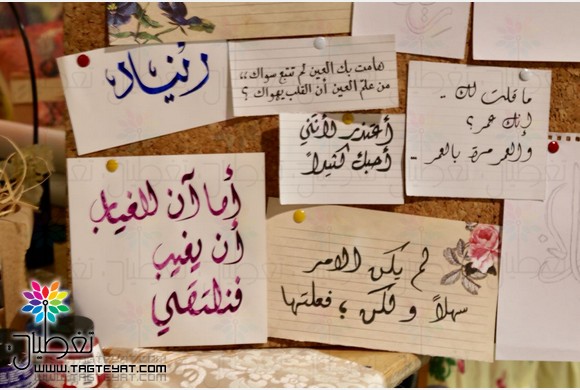 رئياد
هامت بك العين لم تتبع سواك،،
من علم العين أن القلب يهواك ؟
ما قلت لك ..
إنك عمر؟
والعمر مرة بالعمر ..
أعتذر لأنني
أحبك كثيراً
أما آن للغياب
أن يغيب
فنلتقي
لم يكن الامر
سهلاً ولكن ؛ فعلتها
تغطيات
WWW.TAGTEYAT.COM